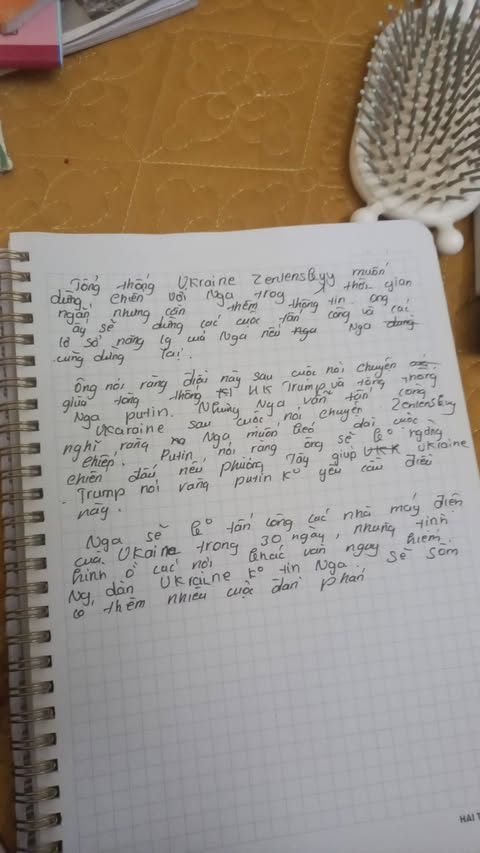 Tổng thống Ukraine Zenlenskyy muốn
dừng chiến với Nga trog thời gian
ngắn nhưng cần thêm thông tin. Ong
ấy sẽ dừng các cuộc tấn công vào các
cơ sở năng lg của Nga nếu Nga
cũng dừng lại.
Ông nói rằng điều này sau cuộc nói chuyện
giữa tổng thống Trump và tổng thống
Nga putin. Nhưng Nga vẫn tấn công
Ukaraine sau cuộc nói chuyện. Zenlenskyy
nghĩ rằng Nga muốn kéo dài cuộc
chiến. Putin nói rằng ông sẽ kº ngừng
chiến đấu nếu phương Tây giúp Ukraine
Trump nói rằng putin kº yêu cầu điều
này.
Nga sẽ kº tấn công các nhà máy điện
của Ukaine trong 30 ngày, nhưng tình
hình ở các nơi khác vẫn nguy hiểm.
Ng dân Ukraine kº tin Nga. Sẽ sớm
có thêm nhiều cuộc đàn phán
HAI T